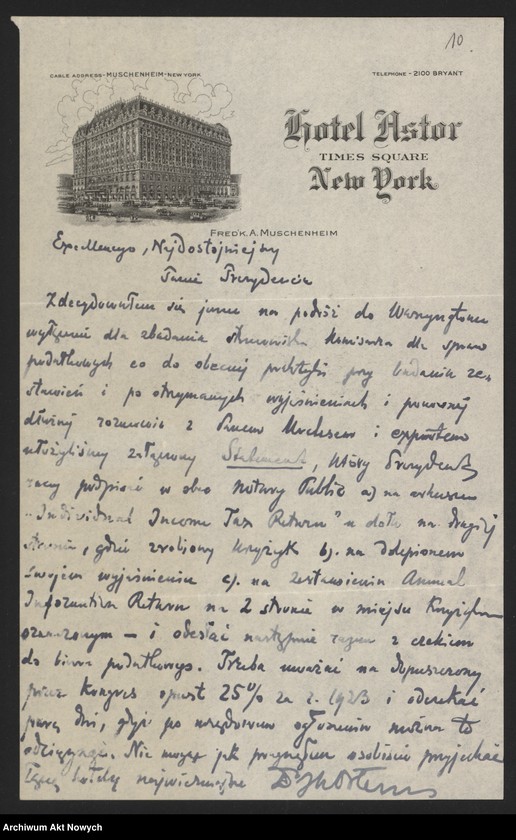 10.
CABLE ADDRESS - MUSCHENHEIM - NEW YORK
TELEPHONE - 2100 BRYANT
Hotel Astor
TIMES SQUARE
New York
FRED'K. A. MUSCHENHEIM
Excellencyo, Najdostojniejszy
Panie Prezydencie
Zdecydowałem się na podróż do Waszyngtonu
wyłącznie dla zbadania stanowiska Komisarza dla spraw
podatkowych co do obecnej praktyki przy badaniu ze-
stawień i po otrzymanych wyjaśnieniach i ponownej
dłuższej rozmowie z Panem i expertem
ułożyliśmy załączony Statement, który Prezydent
raczy podpisać w obec Notary Public a) na arkuszu
"Individual Income Tax Return" u dołu na drugiej
stronie, gdzie zrobiony krzyżyk b). na dolepionem
swojem wyjaśnieniu c). na zestawieniu Annual
Information Return na 2 stronie w miejscu krzyżykiem
oznaczonym — i odesłać następnie razem z czekiem
do biura podatkowego. Trzeba uważać na dopuszczony
przez Kongres opust 25% za r. 1923 i odczekać
parę dni, gdyż po urzędowem ogłoszeniu można to
odciągnąć. Nie mogę jak przyjechać
Łączę najwierniejsze